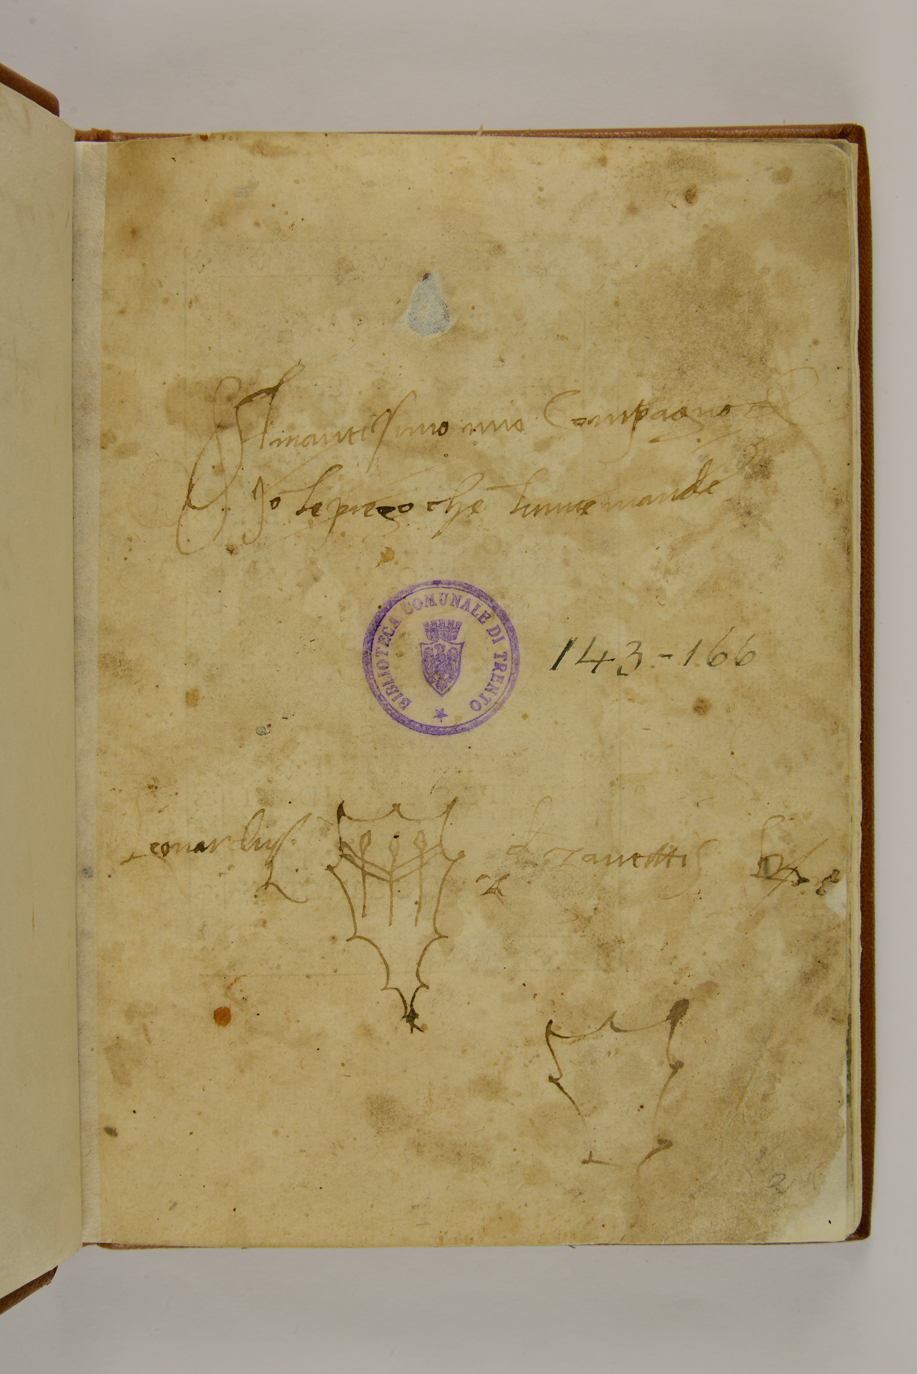 Amantissimo mio Compagno
Io te prego che tu me mande
BIBLIOTECA COMUNALE DI TRENTO
143-166
Leonardus
Zanettis
2